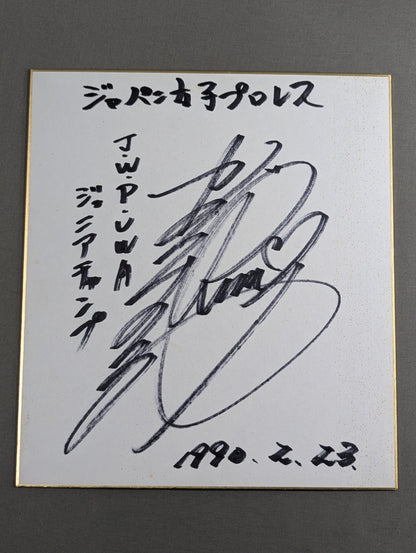 ジャパン女子プロレス
J・W・P・U・W・A
ジュニアチャンプ
1990.2.23.